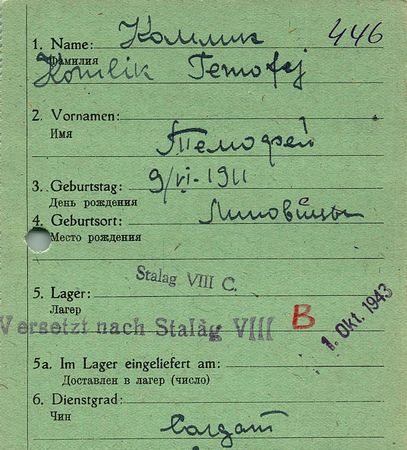 1. Name: Комлик 446
Фамилия
Komlik Temofej
2. Vornamen:
Имя
Темофей
3. Geburtstag: 9/VI-1911
День рождения
4. Geburtsort:
Место рождения
Stalag VIII C.
5. Lager:
Лагерь
Versetzt nach Stalag VIII B 1. Okt. 1943
5a. Im Lager eingeliefert am:
Доставлен в лагерь (число)
6. Dienstgrad:
Чин
Солдат